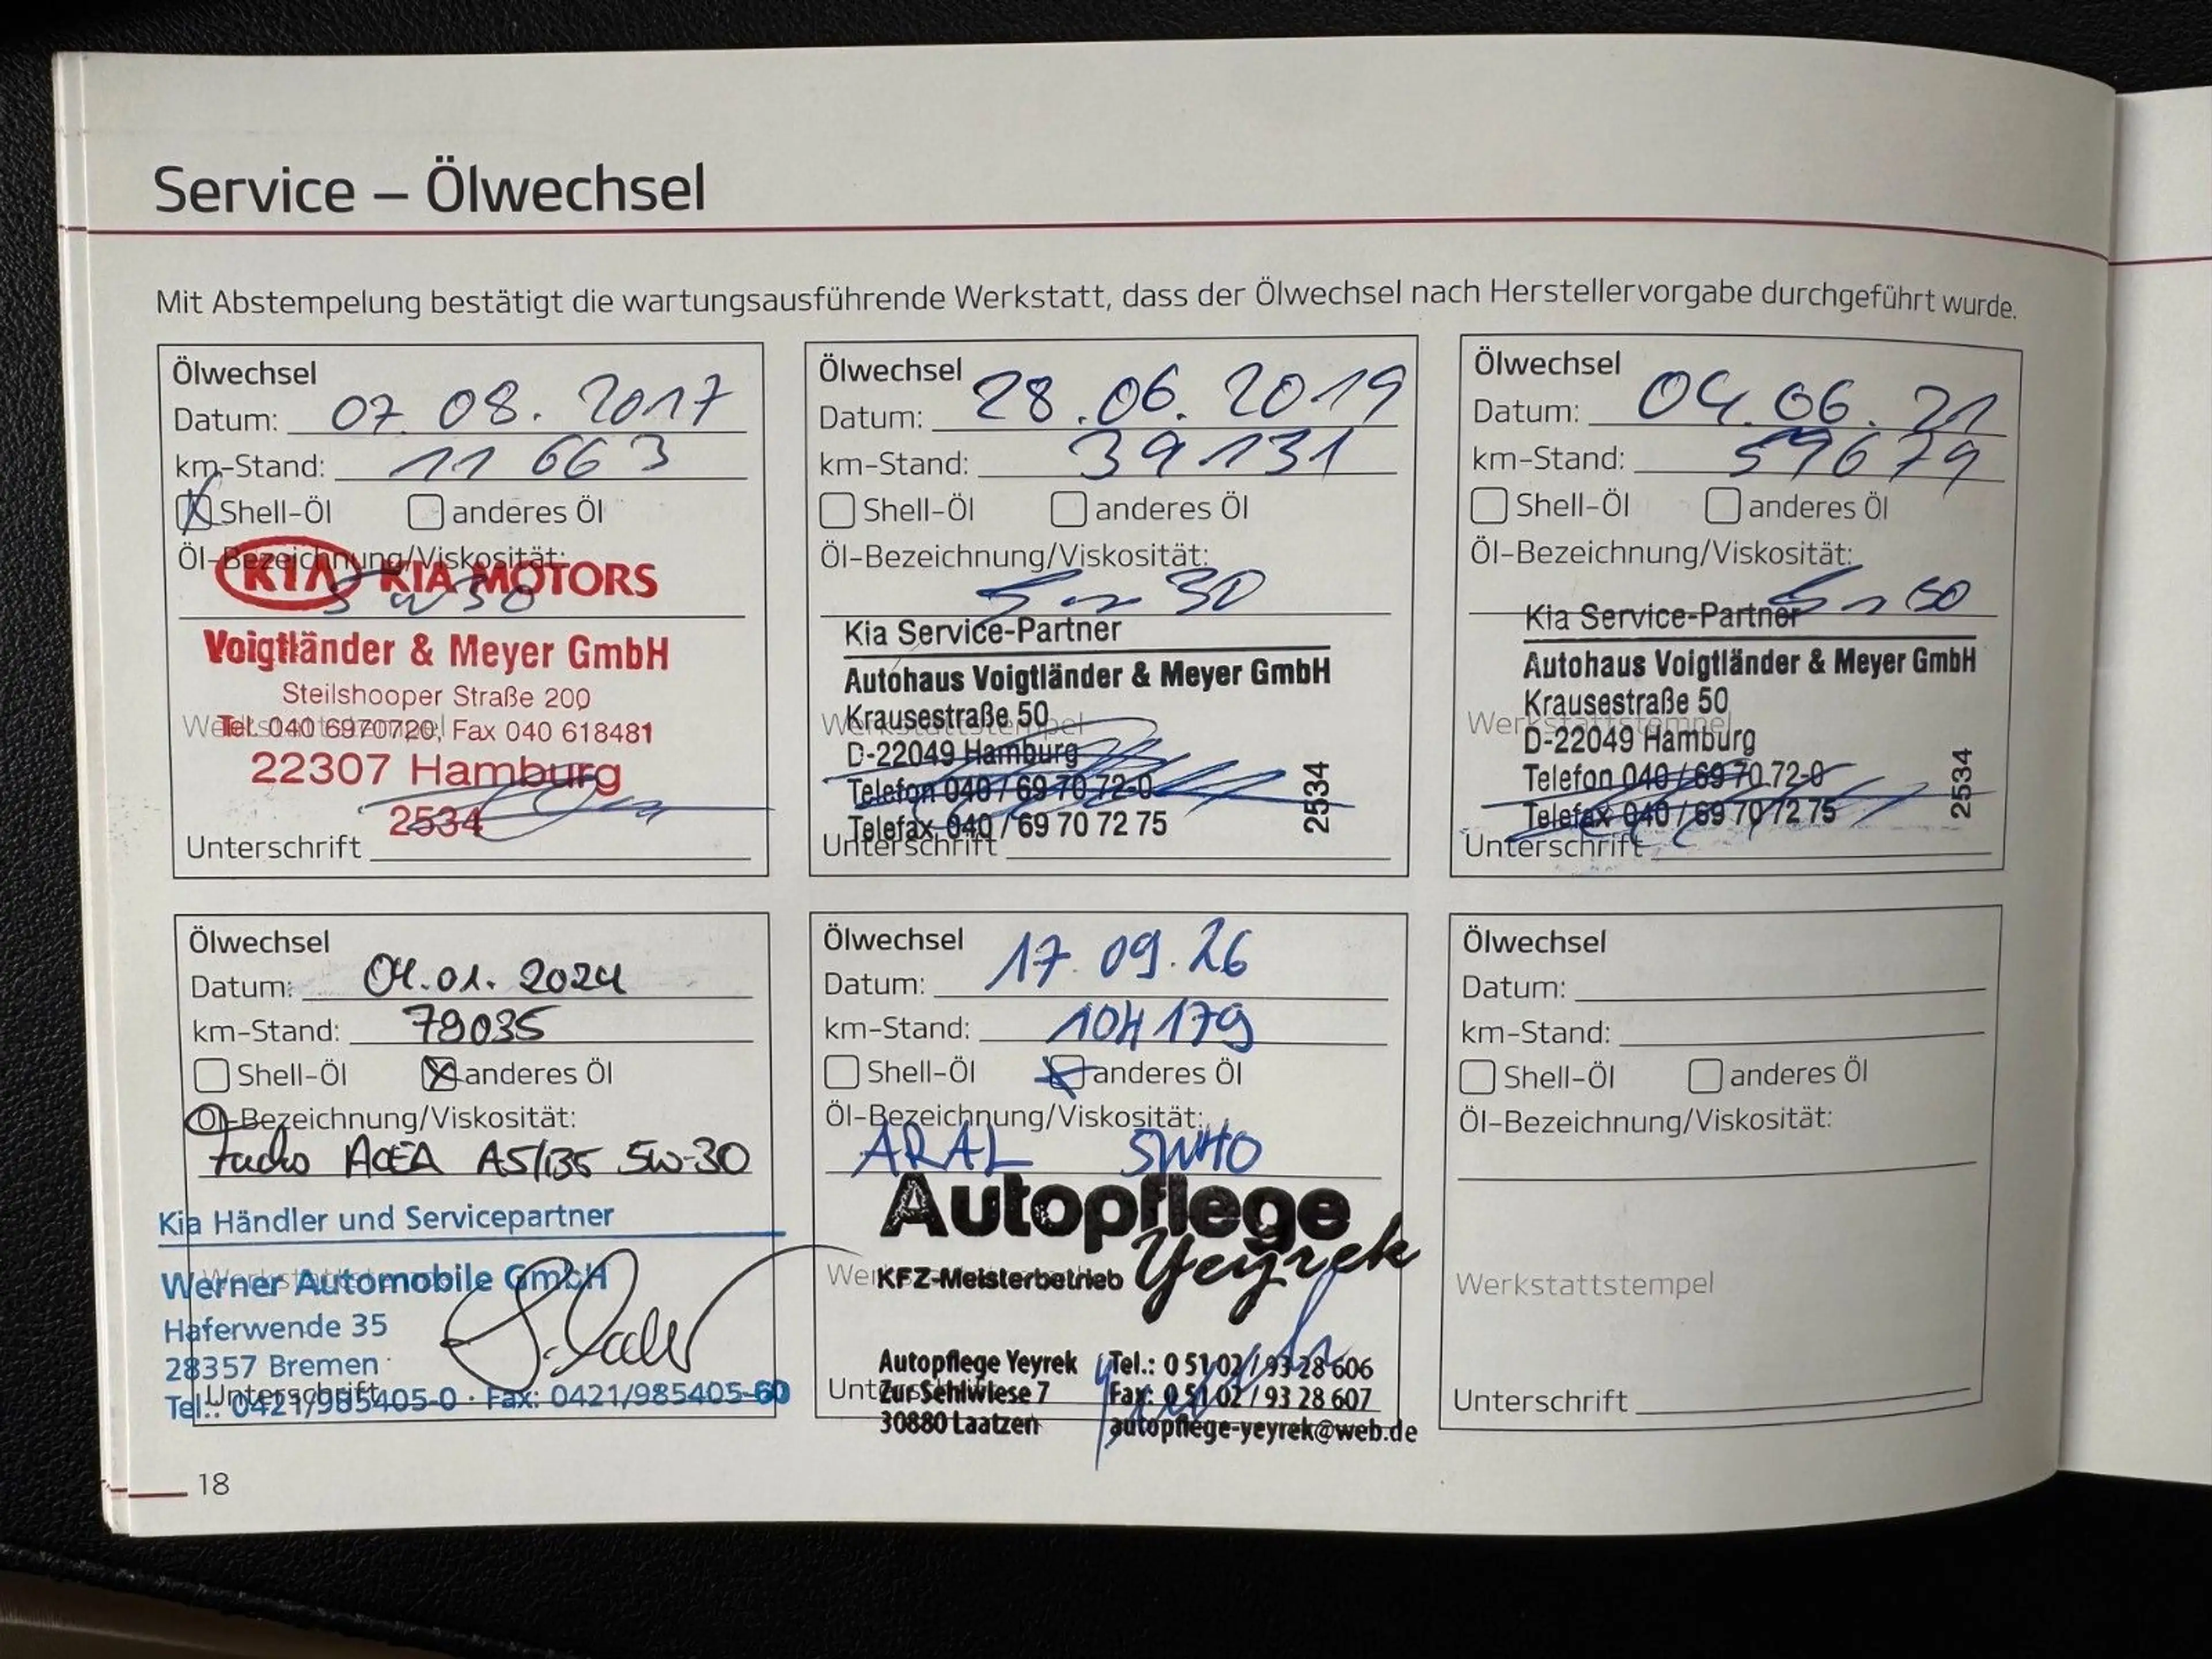 Service – Ölwechsel
Mit Abstempelung bestätigt die wartungsausführende Werkstatt, dass der Ölwechsel nach Herstellervorgabe durchgeführt wurde.
Ölwechsel
Datum: 07.08.2017
km-Stand: 11 663
Shell-Öl anderes Öl
Öl-Bezeichnung/Viskosität:
KIA KIA MOTORS
5w30
Voigtländer & Meyer GmbH
Steilshooper Straße 200
Werkstattstempel
Tel. 040 6970720, Fax 040 618481
22307 Hamburg
2534
Unterschrift
Ölwechsel
Datum: 28.06.2019
km-Stand: 39131
Shell-Öl anderes Öl
Öl-Bezeichnung/Viskosität:
5w30
Kia Service-Partner
Autohaus Voigtländer & Meyer GmbH
Krausestraße 50
Werkstattstempel
D-22049 Hamburg
Telefon 040 / 69 70 72-0
Telefax 040 / 69 70 72 75
2534
Unterschrift
Ölwechsel
Datum: 04.06.21
km-Stand: 59679
Shell-Öl anderes Öl
Öl-Bezeichnung/Viskosität:
Kia Service-Partner
Autohaus Voigtländer & Meyer GmbH
Krausestraße 50
Werkstattstempel
D-22049 Hamburg
Telefon 040 / 69 70 72-0
Telefax 040 / 69 70 72 75
2534
Unterschrift
Ölwechsel
Datum: 04.01.2024
km-Stand: 79035
Shell-Öl anderes Öl
Öl-Bezeichnung/Viskosität:
ACEA A5/B5 5w-30
Kia Händler und Servicepartner
Werkstattstempel
Werner Automobile GmbH
Haferwende 35
28357 Bremen
Unterschrift
Tel.: 0421/985405-0 · Fax: 0421/985405-60
Ölwechsel
Datum: 17.09.26
km-Stand: 104179
Shell-Öl anderes Öl
Öl-Bezeichnung/Viskosität:
ARAL 5W40
Autopflege
Yeyrek
Werkstattstempel
KFZ-Meisterbetrieb
Autopflege Yeyrek Tel.: 0 51 02 / 93 28 606
Unterschrift
Zur Sehlwiese 7 Fax: 0 51 02 / 93 28 607
30880 Laatzen autopflege-yeyrek@web.de
Ölwechsel
Datum:
km-Stand:
Shell-Öl anderes Öl
Öl-Bezeichnung/Viskosität:
Werkstattstempel
Unterschrift
18